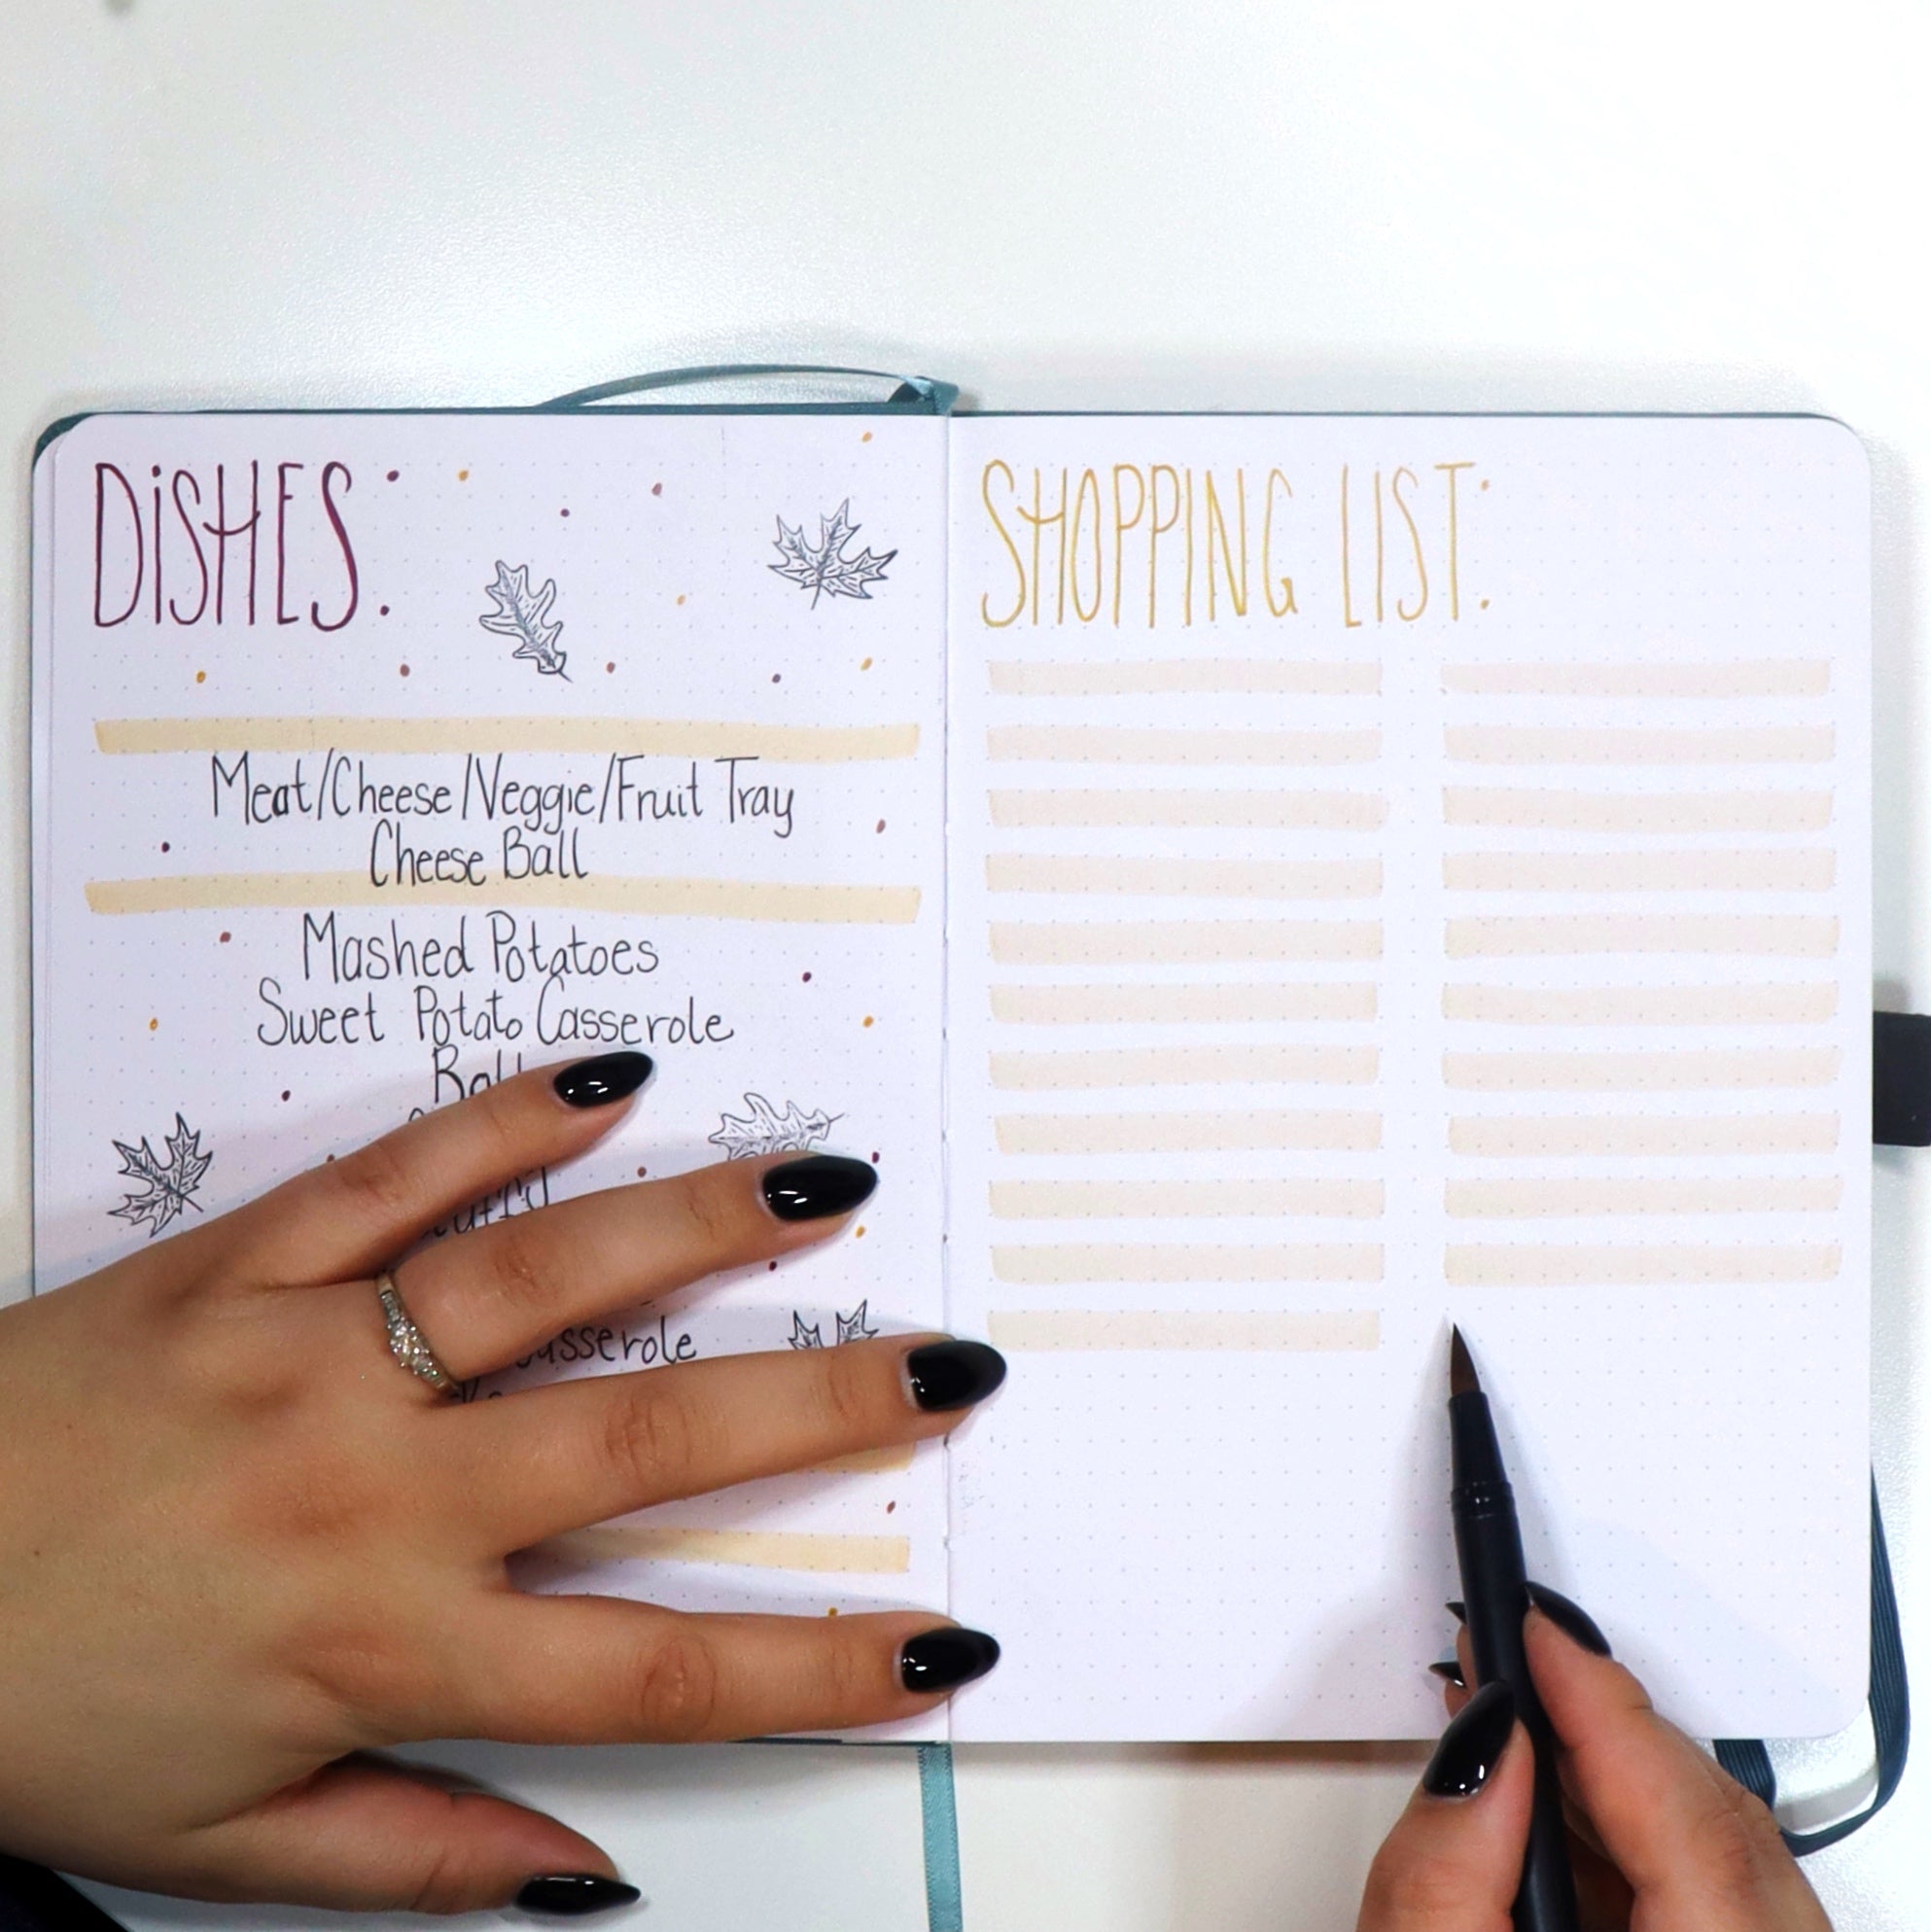 DiSHES:
Meat/Cheese/Veggie/Fruit Tray
Cheese Ball
Mashed Potatoes
Sweet Potato Casserole
SHOPPING LIST: